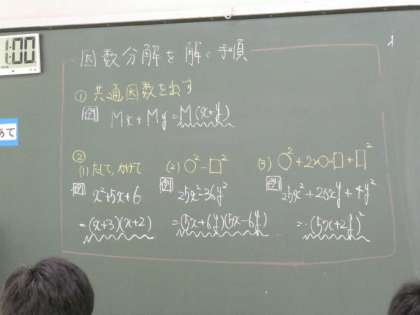 1:00
因数分解を解く手順
① 共通因数を出す
例 Mx+My=M(x+y)
あて
②
(1) たして、かけて (2) ○²-□² (3) ○²+2×○×□+□²
例 x²+5x+6 例 25x²-36y² 例 25x²+20xy+4y²
=(x+3)(x+2) =(5x+6y)(5x-6y) =(5x+2y)²